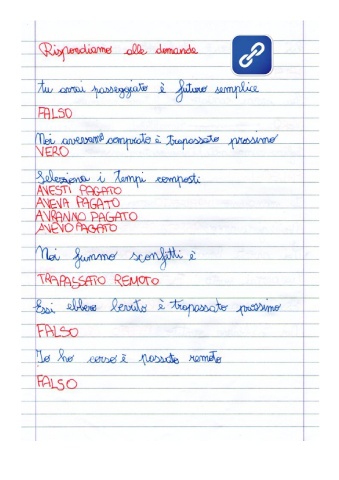 Rispondiamo alle domande
tu avrai passeggiato è futuro semplice
FALSO
Noi avevamo comprato è trapassato prossimo
VERO
Seleziona i tempi composti
AVESTI PAGATO
AVEVA PAGATO
AVRANNO PAGATO
AVEVO PAGATO
Noi fummo sconfitti è
TRAPASSATO REMOTO
Essi ebbero servito è trapassato prossimo
FALSO
Io ho corso è passato remoto
FALSO